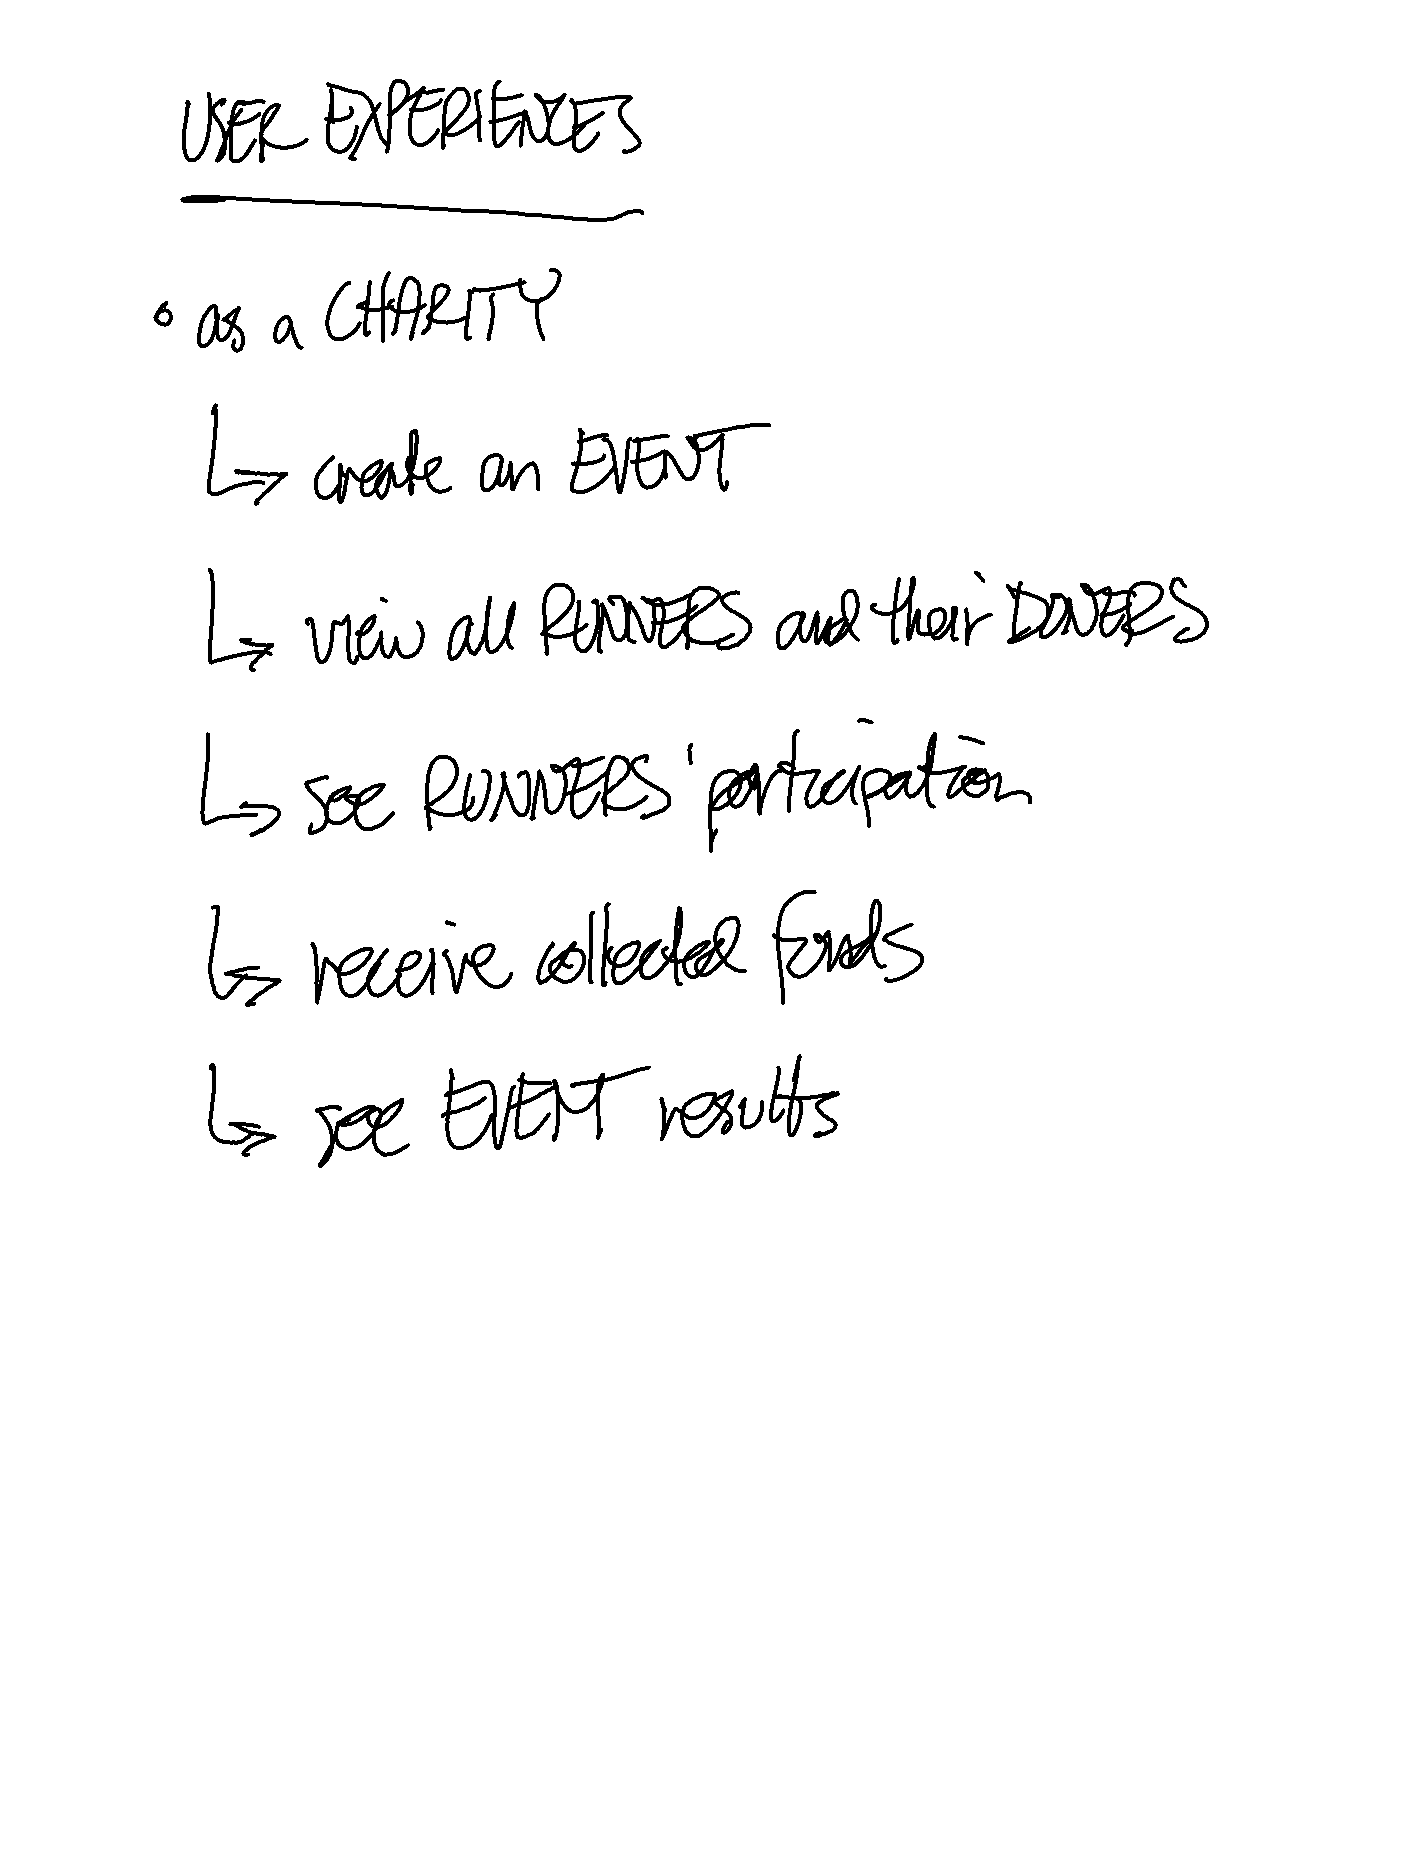 USER EXPERIENCES
as a CHARITY
create an EVENT
view all RUNNERS and their DONERS
see RUNNERS' participation
receive collected funds
see EVENT results